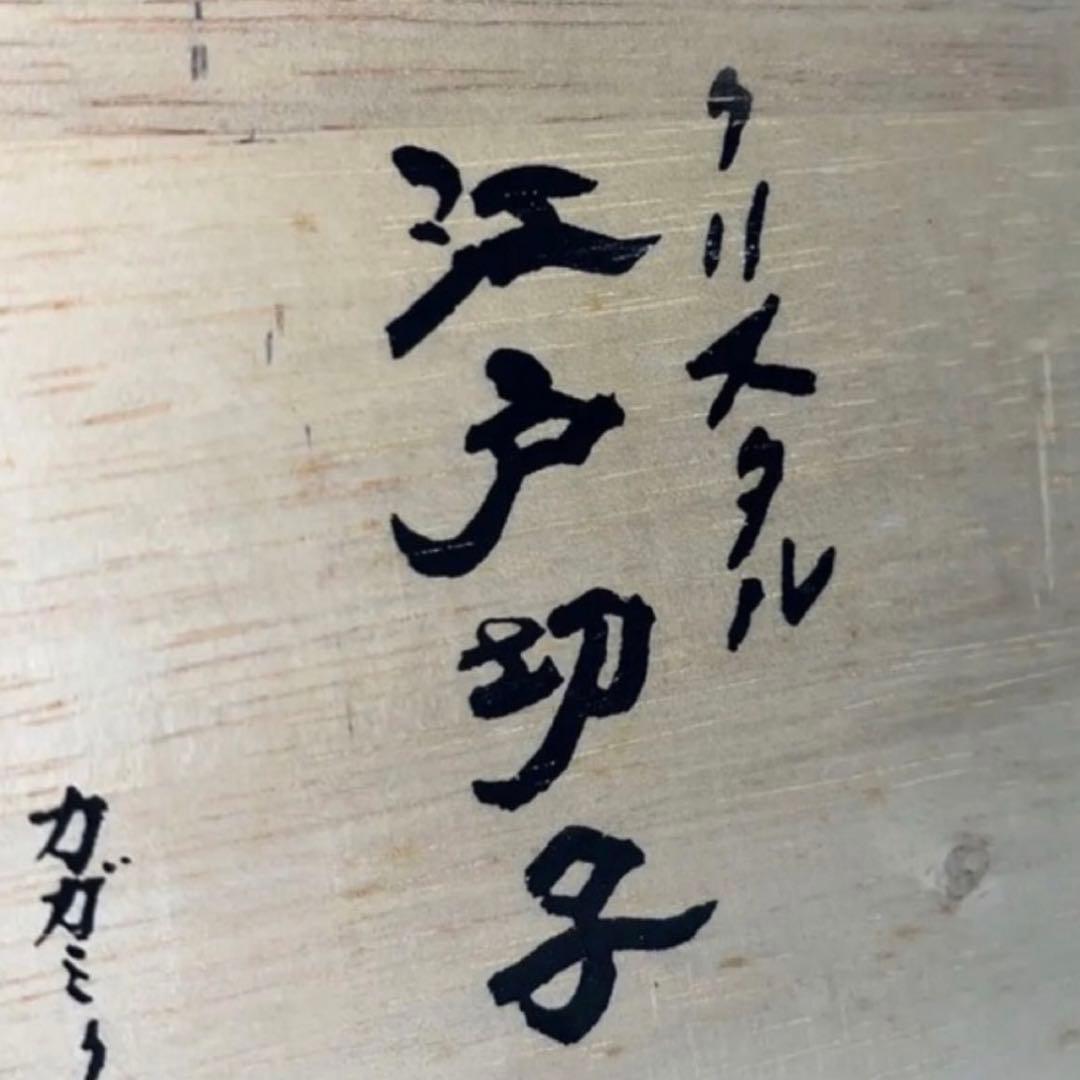 クリスタル
江戸切子
カガミク